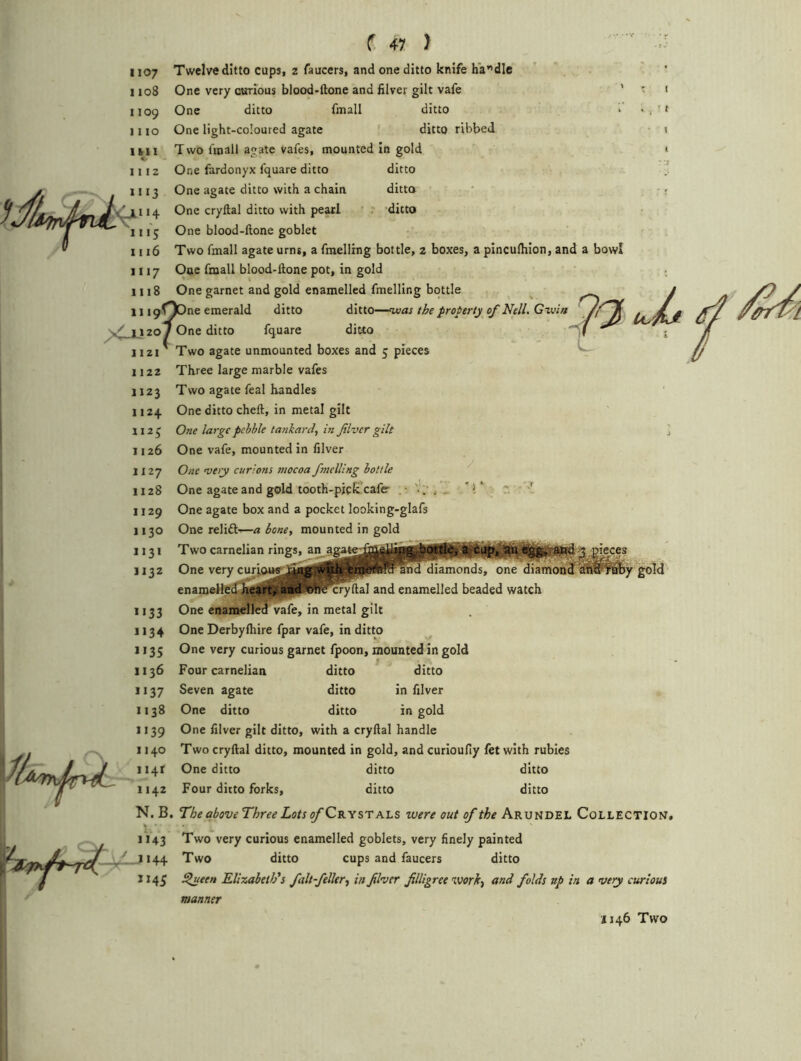 ( 47 )
1107 Twelve ditto cups, 2 ſaucers, and one ditto knife handle
1108 One very curious blood-ſtone and ſilver gilt vaſe
1109 One ditto ſmall ditto
1110 One light-coloured agate ditto ribbed
1111 Two ſmall agate vaſes, mounted in gold
1112 One ſardonyx ſquare ditto ditto
1113 One agate ditto with a chain ditto
1114 One cryſtal ditto with pearl ditto
1115 One blood-ſtone goblet
1116 Two ſmall agate urns, a ſmelling bottle, 2 boxes, a pincuſhion, and a bowl
1117 One ſmall blood-ſtone pot, in gold
1118 One garnet and gold enamelled ſmelling bottle
1119 One emerald ditto ditto—was the property of Nell. Gwin
1120 One ditto ſquare ditto
1121 Two agate unmounted boxes and 5 pieces
1122 Three large marble vaſes
1123 Two agate ſeal handles
1124 One ditto cheſt, in metal gilt
1125 One large pebble tankard, in ſilver gilt
1126 One vaſe, mounted in ſilver
1127 One very curious mocoa ſmelling bottle
1128 One agate and gold tooth-pick caſe
1129 One agate box and a pocket looking-glaſs
1130 One relict—a bone, mounted in gold
1131 Two carnelian rings, an agate ſmelling bottle, a cup, an egg, and 3 pieces
1132 One very curious ring with emerald and diamonds, one diamond and ruby gold
enamelled heart, and one cryſtal and enamelled beaded watch
1133 One enamelled vaſe, in metal gilt
1134 One Derbyſhire ſpar vaſe, in ditto
1135 One very curious garnet ſpoon, mounted in gold
1136 Four carnelian ditto ditto
1137 Seven agate ditto in ſilver
1138 One ditto ditto in gold
1139 One ſilver gilt ditto, with a cryſtal handle
1140 Two cryſtal ditto, mounted in gold, and curiouſly ſet with rubies
1141 One ditto ditto ditto
1142 Four ditto forks, ditto ditto
N. B. The above Three Lots of CRYSTALS were out of the ARUNDEL COLLECTION.
1143 Two very curious enamelled goblets, very finely painted
1144 Two ditto cups and ſaucers ditto
1145 Queen Elizabeth's ſalt-ſeller, in ſilver filligree work, and folds up in a very curious
manner
1146 Two